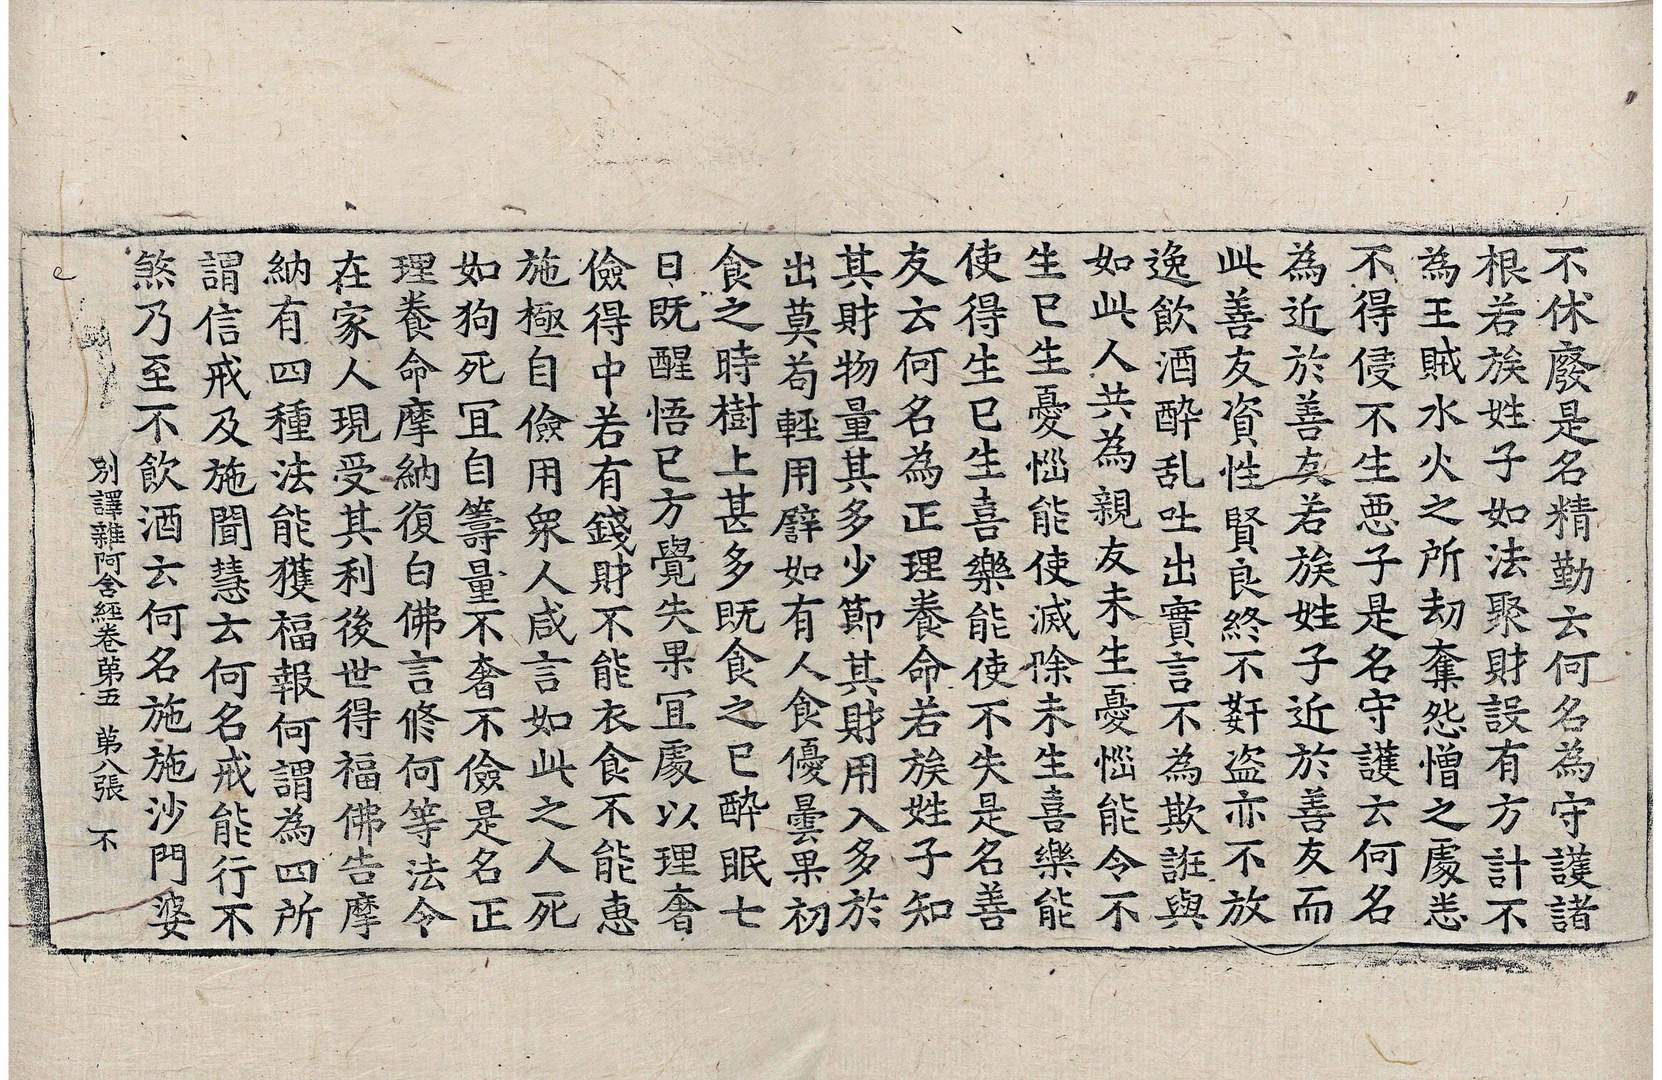 不休廢是名精勤云何名為守護諸
根若族姓子如法聚財設有方計不
為王賊水火之所劫奪怨憎之處恙
不得侵不生悪子是名守護云何名
為近於善友若族姓子近於善友而
此善友資性賢良終不姧盗亦不放
逸飲酒醉乱吐出實言不為欺誑與
如此人共為親友未生憂惱能令不
生已生憂惱能使滅除未生喜樂能
使得生已生喜樂能使不失是名善
友云何名為正理養命若族姓子知
其財物量其多少節其財用入多於
出莫苟輕用譬如有人食優曇果初
食之時樹上甚多既食之已醉眠七
日既醒悟已方覺失果冝處以理奢
儉得中若有錢財不能衣食不能惠
施極自儉用衆人咸言如此之人死
如狗死冝自籌量不奢不儉是名正
理養命摩納復白佛言修何等法令
在家人現受其利後世得福佛告摩
納有四種法能獲福報何謂為四所
謂信戒及施聞慧云何名戒能行不
煞乃至不飲酒云何名施施沙門婆
別譯雜阿含經卷第五 第八張 不